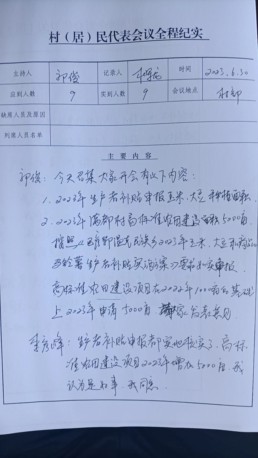 村（居）民代表会议全程纪实
主持人 祁俊 记录人 时间 2023.6.30
应到人数 9 实到人数 9 会议地点 村部
缺席人员及原因
列席人员名单
主 要 内 容
祁俊：今天召集大家开会有以下内容：
1. 2023年生产者补贴申报玉米、大豆种植面积。
2. 2023年 村高标准农田建设面积5000亩
按照 2023年玉米、大豆
生产者补贴实施方案 要求 申报。
高标准农田建设项目在2022年1000亩的基础
上2023年申请5000亩 大家发表意见
生产者补贴申报都实地核实了，高标
准农田建设项目2023年增加5000亩 我
认为是好事 我同意